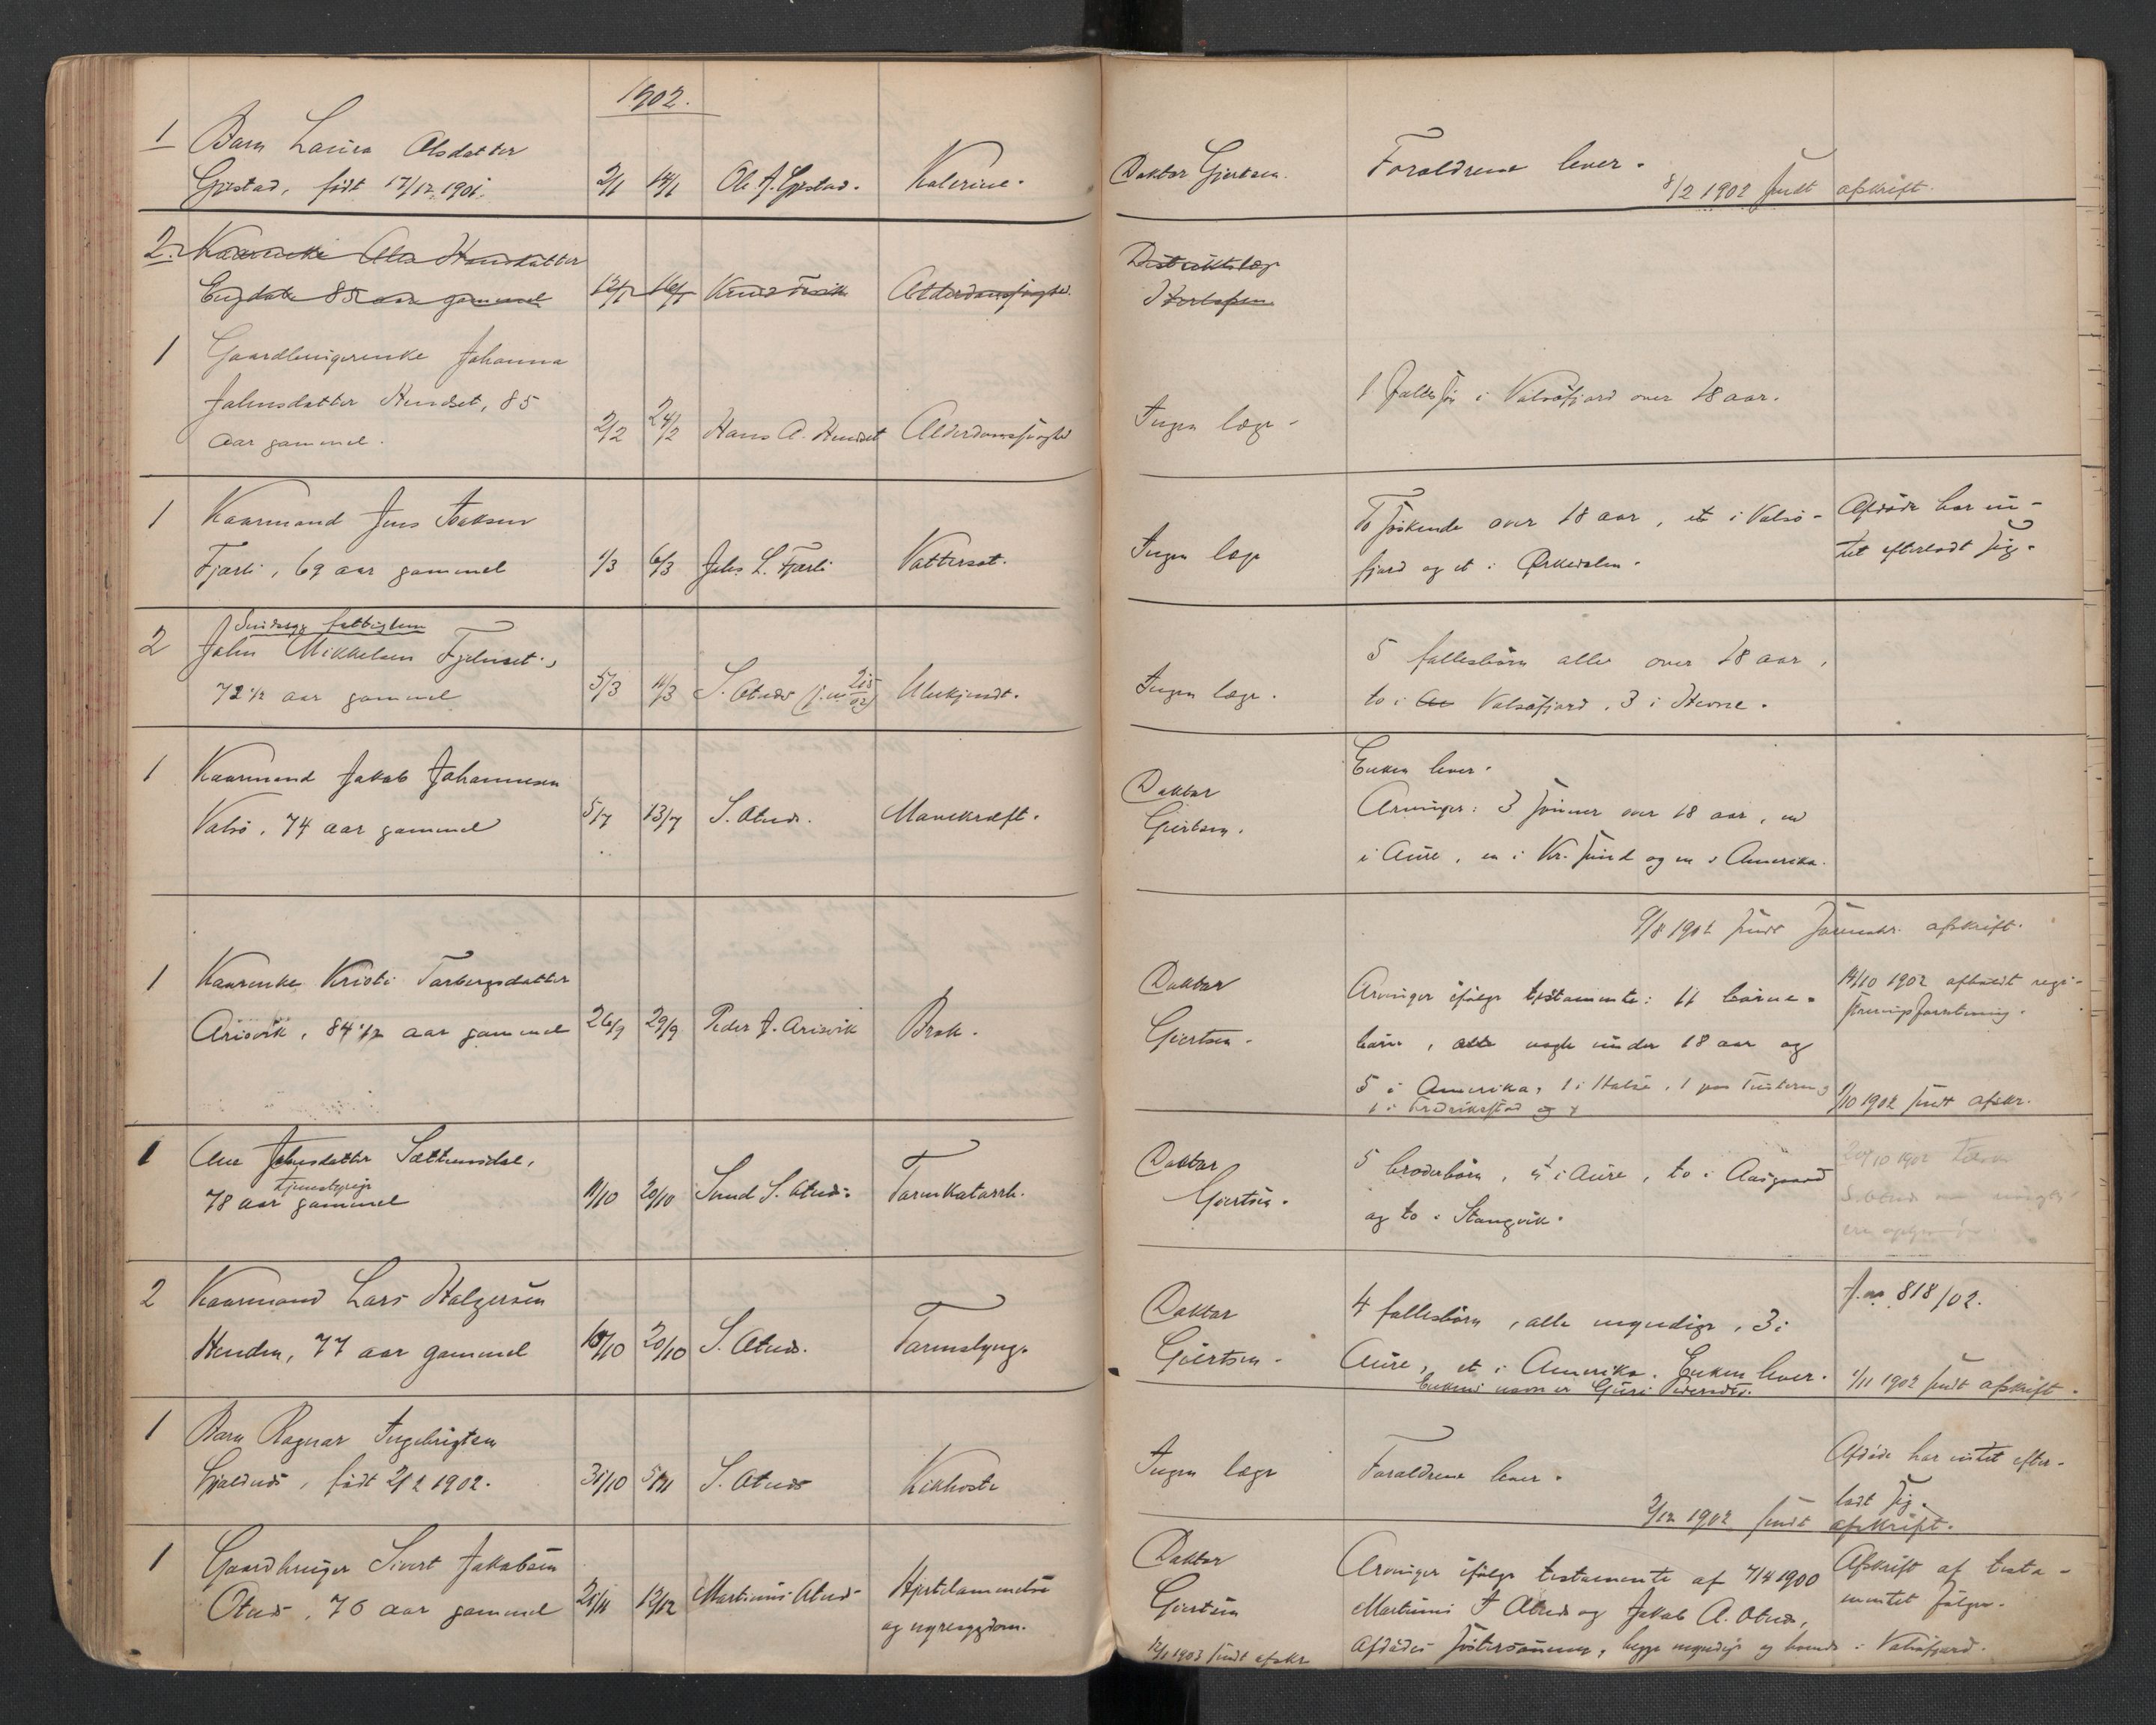 1902.
1 Barn Laura Olsdatter
Gjestad, født 17/12 1901. 2/1 14/1 Ole J. Gjestad. Kolerine.
Doktor Giertsen. Forældrene lever.
8/2 1902 sendt afskrift.
2. Kaarenke Ales Hansdatter
Engdal 85 aar gammel 12/1 16/1 Knud Alderdomssvaghed.
Distriktslæge
1 Gaardbrugerenke Johanna
Johnsdatter Hendset, 85
aar gammel. 2/2 24/2 Hans A. Hendset Alderdomssvaghed
Ingen læge - 1 fælles i Valsøfjord over 18 aar.
1 Kaarmand Jens Isaksen
Fjærli, 69 aar gammel 1/3 6/3 Johs. L. Fjærli Vattersot.
Ingen læge To søskende over 18 aar, et i Valsø-
fjord og et i Ørkedalen.
Afdøde har in-
tet efterladt sig.
2 Sindssyg fattiglem
John Mikkelsen Fjelnset,
72 1/2 aar gammel 5/3 11/3 S. Otnes (j.n. 215/02) Ubekjendt.
Ingen læge. 5 fællesbørn alle over 18 aar,
to i Valsøfjord, 3 i Hevne.
1 Kaarmand Jakob Johannesen
Valsø, 74 aar gammel 5/7 13/7 S. Otnes. Mavekræft.
Doktor
Giertsen.
Enken lever.
Arvinger: 3 sønner over 18 aar, en
i Aure, en i Kr.sund og en i Amerika.
9/8 1902 sendt Sorenskr. afskrift.
1 Kaarenke Kristi Torbergsdatter
Arisvik, 84 1/2 aar gammel 26/9 29/9 Peder J. Arisvik Brok.
Doktor
Giertsen.
Arvinger ifølge testamente: 11 børne-
børn, alle nogle under 18 aar og
5 i Amerika, 1 i Halse, 1 paa Tusteren,
1 i Fredriksstad og
14/10 1902 afholdt regi-
streringsforretning.
/10 1902 sendt afskr.
1 Ane Johnsdatter Sættemsdal,
tjenestepige
78 aar gammel 11/10 20/10 Svend S. Otnes. Tarmkatarrh.
Doktor
Giertsen.
5 broderbørn, et i Aure, to i Aasgaard
og to i Stangvik.
20/10 1902
S. Otnes om
2 Kaarmand Lars Halgersen
Henden, 77 aar gammel 10/10 20/10 S. Otnes. Tarmslyng.
Doktor
Giertsen.
4 fællesbørn, alle myndige, 3 i
Aure, et i Amerika. Enken lever.
Enkens navn er Guri Pedersdtr.
J.no 818/02.
1/11 1902 sendt afskrift.
1 Barn Ragnar Ingebrigtsen
Gjeldnes, født 2/2 1902. 31/10 5/11 S. Otnes Kikhoste
Ingen læge Forældrene lever.
Afdøde har intet efter-
ladt sig.
2/12 1902 sendt afskrift.
1 Gaardbruger Sivert Jakobsen
Otnes, 76 aar gammel 25/11 12/12 Martinus Otnes Hjertelammelse
og nyresygdom.
Doktor
Giertsen
Arvinger ifølge testamente af 7/4 1900
Martinus I Otnes og Jakob A. Otnes,
Afdødes fostersønner, begge myndige og boende i Valsøfjord.
Afskrift af testa-
mentet følger.
12/1 1903 sendt afskr